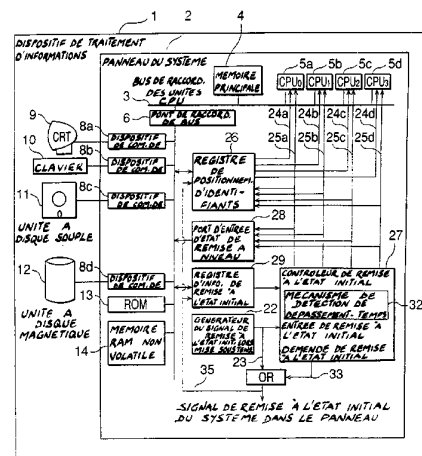 1
2
DISPOSITIF DE TRAITEMENT
D'INFORMATIONS
4
5a 5b 5c 5d
PANNEAU DU SYSTEME
MEMOIRE
PRINCIPALE
CPU0 CPU1 CPU2 CPU3
BUS DE RACCORD.
DES UNITES
CPU
3
6
PONT DE RACCORD.
DE BUS
24a 24b 24c 24d
25a 25b 25c 25d
26
9
CRT
8a
DISPOSITIF
DE COM.DE
10
CLAVIER
8b
DISPOSITIF
DE COM.DE
REGISTRE
DE
POSITIONNEM.
D'IDENTI-
FIANTS
11
8c
DISPOSITIF
DE COM.DE
UNITE A
DISQUE SOUPLE
28
PORT D'ENTREE
D'ETAT DE
REMISE A
NIVEAU
27
29
12
8d
DISPOSITIF
DE COM.DE
REGISTRE
D'INFO. DE
REMISE A
L'ETAT INITIAL
CONTROLEUR DE REMISE
A L'ETAT INITIAL
MECANISME DE
DETECTION DE
DEPASSEMENT-TEMPS
32
13
ROM
22
UNITE A
DISQUE
MAGNETIQUE
14
MEMOIRE
RAM NON
VOLATILE
GENERATEUR
DU SIGNAL DE
REMISE A
L'ETAT INIT. LORS
MISE SOUS TENS.
ENTREE DE REMISE A
L'ETAT INITIAL
DEMANDE DE REMISE
A L'ETAT INITIAL
35
23
OR
33
SIGNAL DE REMISE A L'ETAT INITIAL
DU SYSTEME DANS LE PANNEAU